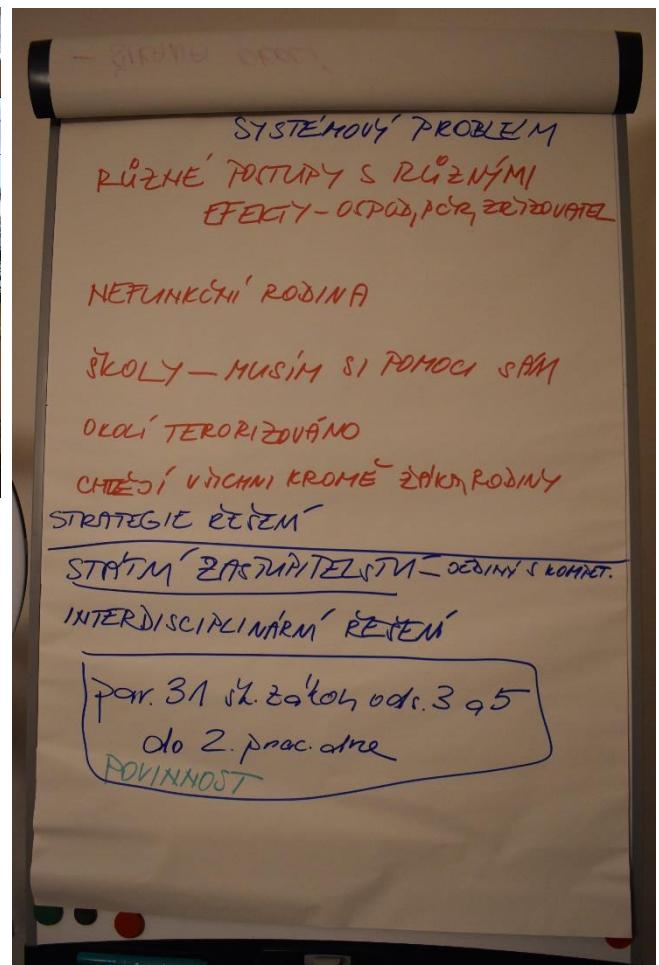 SYSTÉMOVÝ PROBLÉM
RŮZNÉ POSTUPY S RŮZNÝMI
EFEKTY – OSPOD, PČR, ZŘIZOVATEL
NEFUNKČNÍ RODINA
ŠKOLY – MUSÍM SI POMOCI SÁM
OKOLÍ TERORIZOVÁNO
CHTĚJÍ VŠICHNI KROMĚ ŽÁKA, RODINY
STRATEGIE ŘEŠENÍ
STÁTNÍ ZASTUPITELSTVÍ – JEDINÝ S KOMPET.
INTERDISCIPLINÁRNÍ ŘEŠENÍ
par. 31 šk. zákon, ods. 3 a 5
do 2. prac. dne
POVINNOST